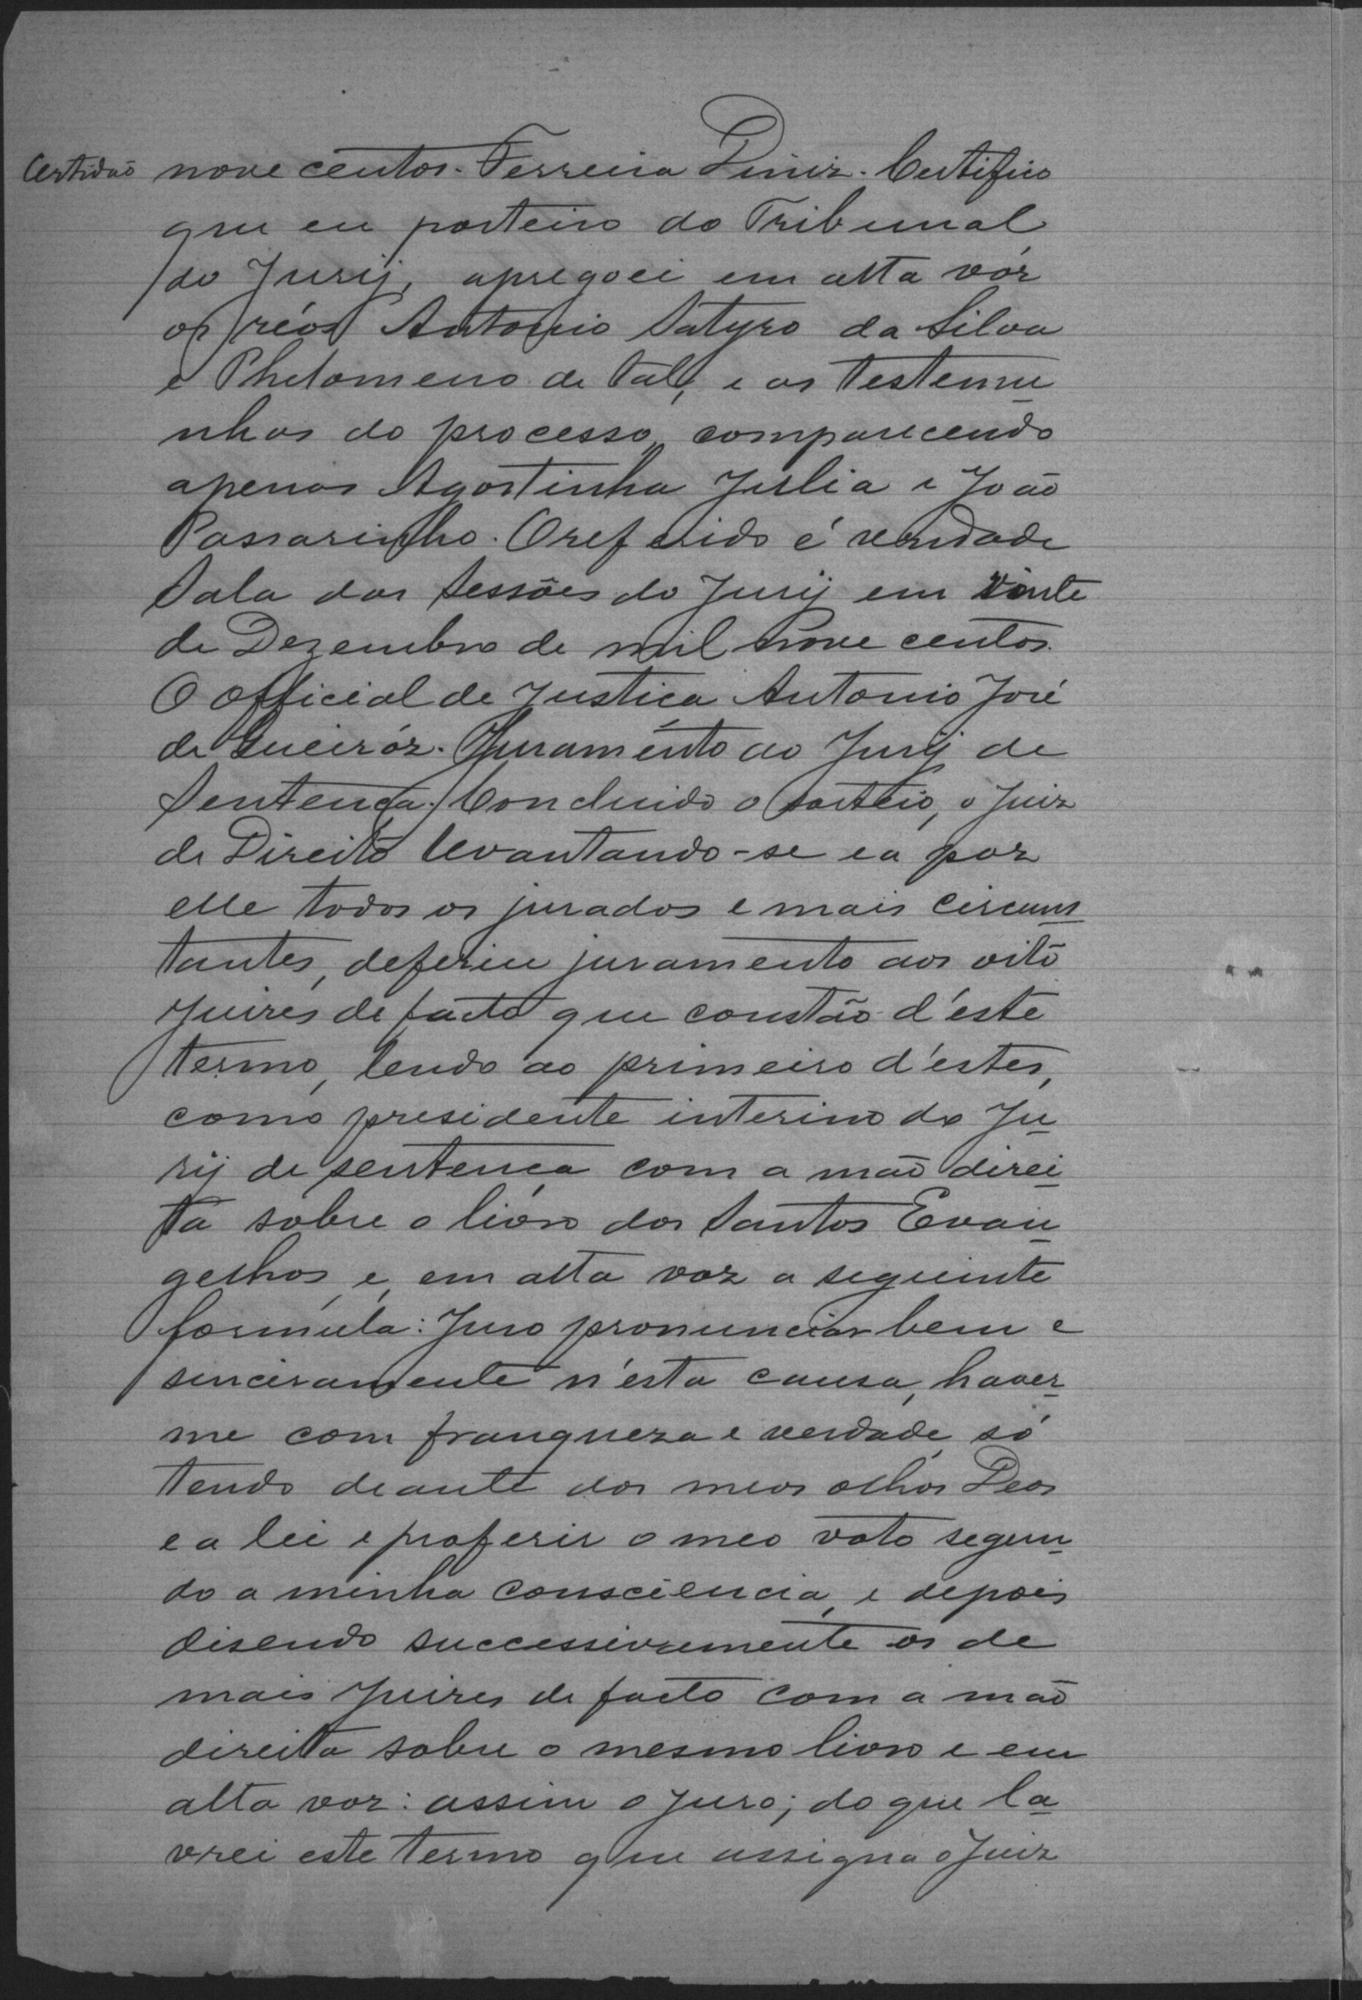 Certidão
nove centos. Ferreira Diniz. Certifico
que eu porteiro do Tribunal
do Jury, apregoei em alta vóz
os réos Antonio Satyro da Silva
e Phelomeno de tal, e as testemu
nhas do processo, comparecendo
apenas Agostinha Julia e João
Passarinho. O referido é verdade
Sala das Sessões do Jury em vinte
de Dezembro de mil nove centos.
O official de Justiça Antonio José
de Queiróz. Juramento ao Jury de
Sentença. Concluido o sorteio, o Juiz
de Direito levantando-se e a por
elle todos os jurados e mais circuns
tantes, deferiu juramento aos oito
Juizes de facto que constão d'este
termo, lendo ao primeiro d'estes,
como presidente interino do Ju
ry de sentença com a mão direi
ta sobre o livro dos Santos Evan
gelhos, e, em alta voz a seguinte
formula: Juro pronunciar bem e
sinceramente n'esta causa, haver-
me com franqueza e verdade, só
tendo deante dos meos olhos Deos
e a lei e proferir o meo voto segun
do a minha consciencia, e depois
disendo successivemente os de
mais Juizes de facto com a mão
direita sobre o mesmo livro e em
alta voz: assim o juro; do que la
vrei este termo que assigna o Juiz